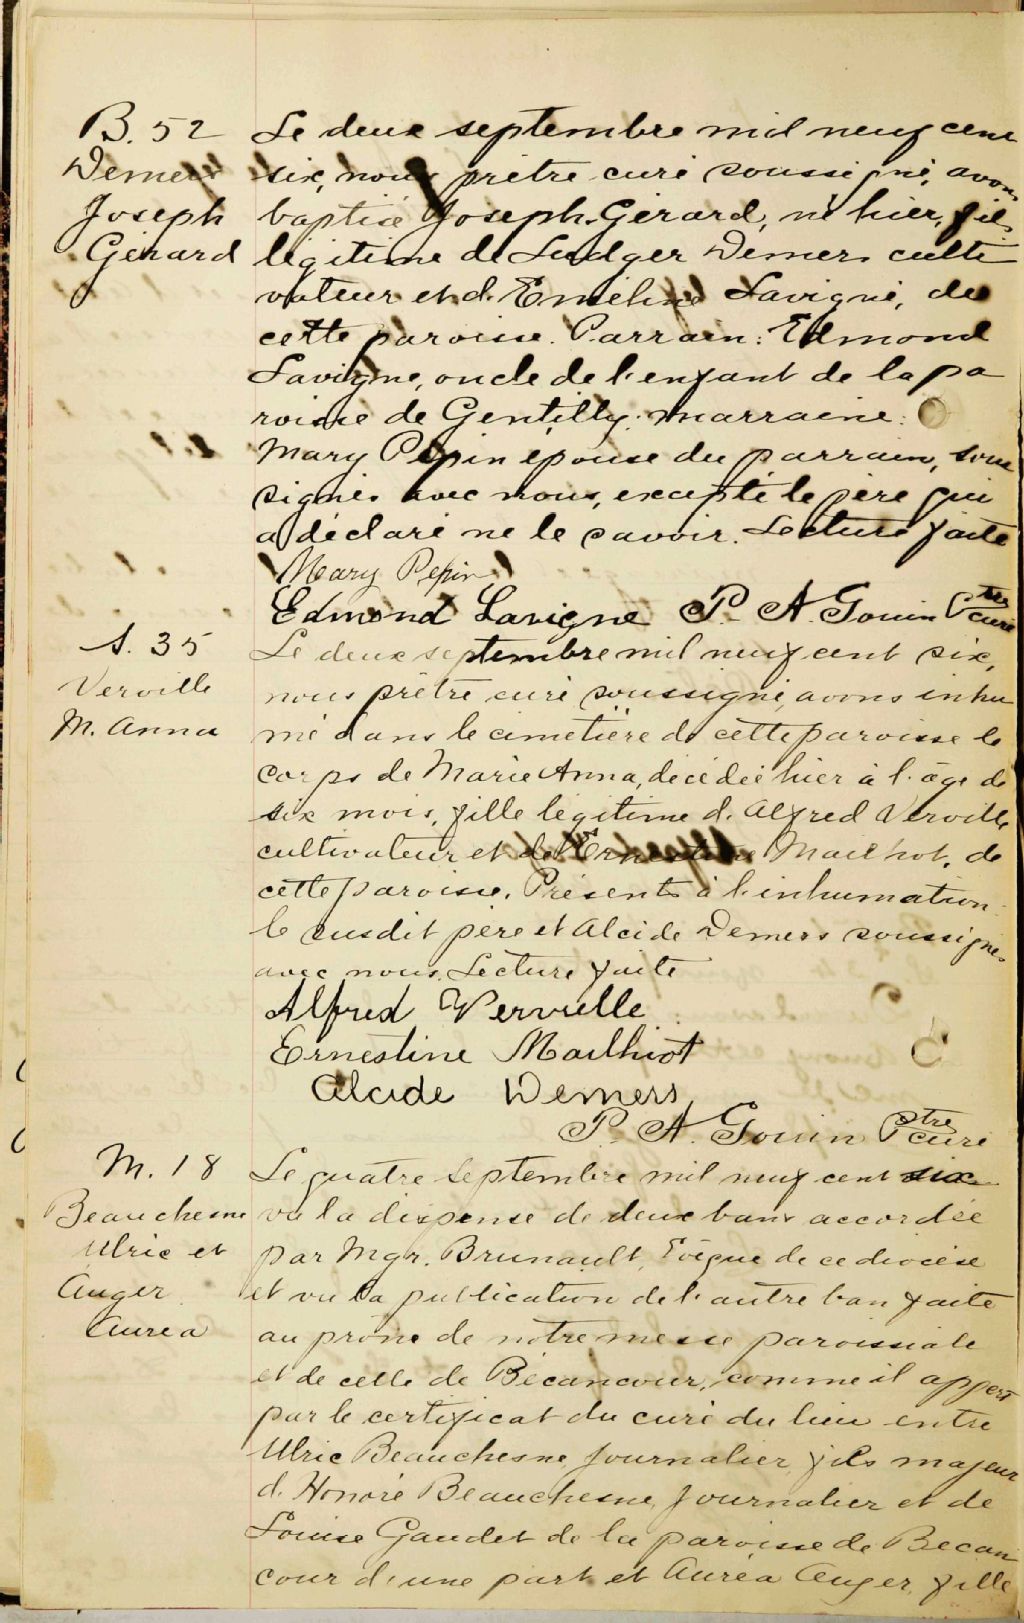 B. 52
Demers
Joseph
Gérard
Le deux septembre mil neuf cent
six, nous prêtre curé soussigné, avons
baptisé Joseph Gérard, né hier, fils
légitime de Ludger Demers culti
vateur et d. Emélina Lavigne, de
cette paroisse. Parrain: Edmond
Lavigne, oncle de l'enfant de la pa
roisse de Gentilly; marraine:
Mary Pepin épouse du parrain, sous
signés avec nous, excepté le père qui
a déclaré ne le savoir. Lecture faite
Mary Pepin
Edmond Lavigne P. A. Gouin Ptre curé
S. 35
Verville
M. Anna
Le deux septembre mil neuf cent six,
nous prêtre curé soussigné, avons inhu
mé dans le cimetière de cette paroisse le
corps de Marie Anna, décédée hier à l'âge de
six mois, fille légitime d. Alfred Verville
cultivateur et de Ernestine Mailhot, de
cette paroisse. Présents à l'inhumation
le susdit père et Alcide Demers soussignés
avec nous. Lecture faite
Alfred Vervielle
Ernestine Mailhiot
Alcide Demers
P. A. Gouin Ptre curé
M. 18
Beauchesne
Ulric et
Auger
Auréa
Le quatre Septembre mil neuf cent six
vu la dispense de deux bans accordée
par Mgr. Brunault, Evêque de ce diocèse
et vu la publication de l'autre ban faite
au prône de notre messe paroissiale
et de celle de Bécancour, comme il appert
par le certificat du curé du lieu entre
Ulric Beauchesne, journalier, fils majeur
d. Honoré Beauchesne, journalier et de
Louise Gaudet de la paroisse de Becan
cour d'une part et Auréa Auger, fille